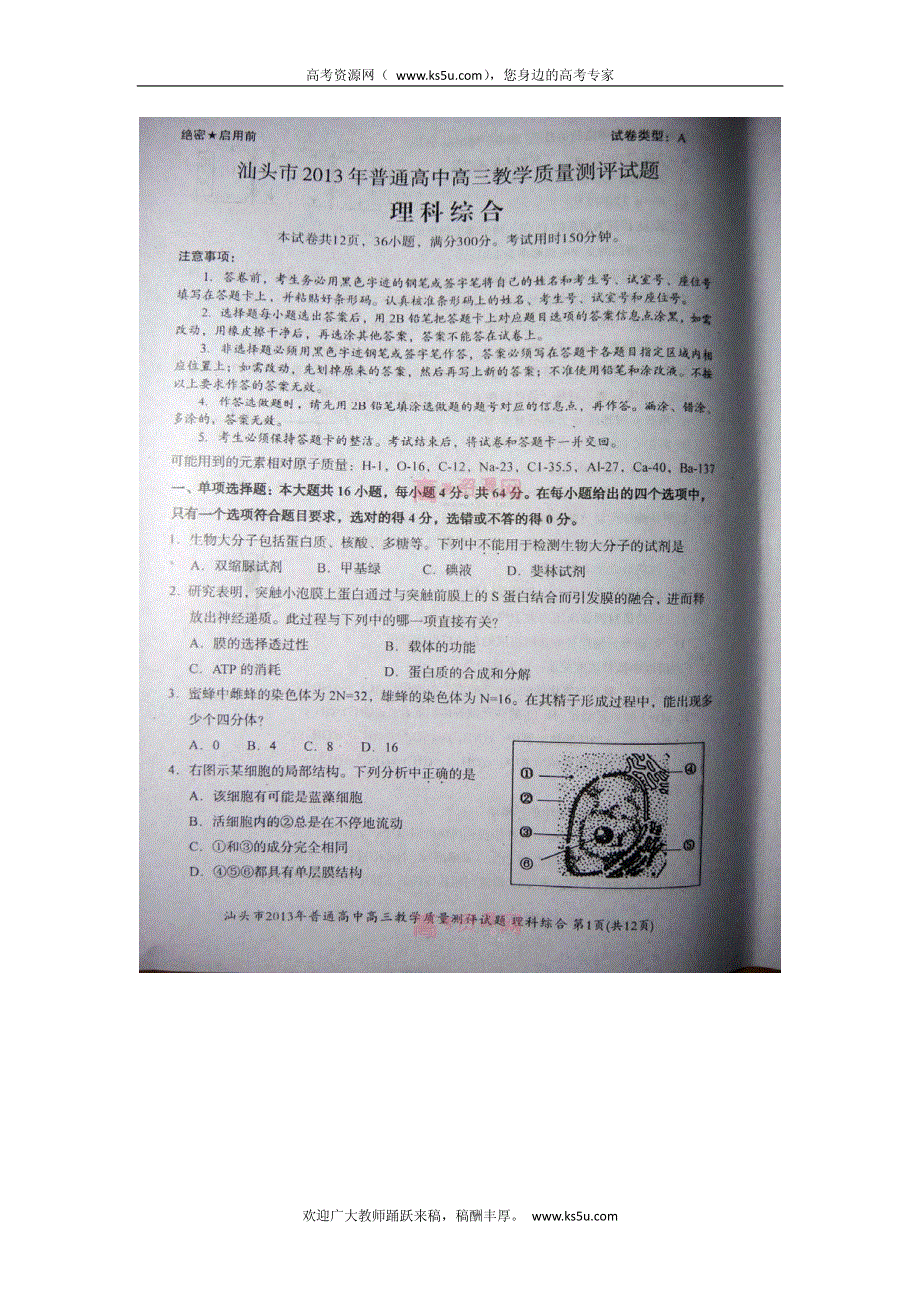 高考资源网（ www.ks5u.com），您身边的高考专家
绝密★启用前 试卷类型：A
汕头市2013年普通高中高三教学质量测评试题
理科综合
本试卷共12页，36小题，满分300分。考试用时150分钟。
注意事项：
1．答卷前，考生务必用黑色字迹的钢笔或签字笔将自己的姓名和考生号、试室号、座位号
填写在答题卡上，并粘贴好条形码。认真核准条形码上的姓名、考生号、试室号和座位号。
2．选择题每小题选出答案后，用2B铅笔把答题卡上对应题目选项的答案信息点涂黑，如需
改动，用橡皮擦干净后，再选涂其他答案，答案不能答在试卷上。
3．非选择题必须用黑色字迹钢笔或签字笔作答，答案必须写在答题卡各题目指定区域内相
应位置上；如需改动，先划掉原来的答案，然后再写上新的答案；不准使用铅笔和涂改液。不按
以上要求作答的答案无效。
4．作答选做题时，请先用2B铅笔填涂选做题的题号对应的信息点，再作答。漏涂、错涂、
多涂的，答案无效。
5．考生必须保持答题卡的整洁。考试结束后，将试卷和答题卡一并交回。
可能用到的元素相对原子质量：H-1，O-16，C-12，Na-23，Cl-35.5，Al-27，Ca-40，Ba-137
一、单项选择题：本大题共16小题，每小题4分。共64分。在每小题给出的四个选项中，
只有一个选项符合题目要求，选对的得4分，选错或不答的得0分。
1．生物大分子包括蛋白质、核酸、多糖等。下列中不能用于检测生物大分子的试剂是
A．双缩脲试剂 B．甲基绿 C．碘液 D．斐林试剂
2．研究表明，突触小泡膜上蛋白通过与突触前膜上的S蛋白结合而引发膜的融合，进而释
放出神经递质。此过程与下列中的哪一项直接有关？
A．膜的选择透过性 B．载体的功能
C．ATP的消耗 D．蛋白质的合成和分解
3．蜜蜂中雌蜂的染色体为2N=32，雄蜂的染色体为N=16。在其精子形成过程中，能出现多
少个四分体？
A．0 B．4 C．8 D．16
4．右图示某细胞的局部结构。下列分析中正确的是
A．该细胞有可能是蓝藻细胞
B．活细胞内的②总是在不停地流动
C．①和③的成分完全相同
D．④⑤⑥都具有单层膜结构
① ④
②
③ ⑤
⑥
汕头市2013年普通高中高三教学质量测评试题 理科综合 第1页(共12页)
欢迎广大教师踊跃来稿，稿酬丰厚。 www.ks5u.com